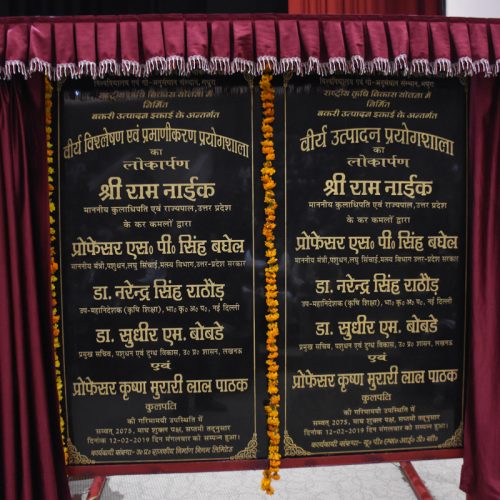 विश्वविद्यालय एवं गो-अनुसंधान संस्थान, मथुरा
राष्ट्रीय कृषि विकास योजना में
निर्मित
बकरी उत्पादन इकाई के अन्तर्गत
वीर्य विश्लेषण एवं प्रमाणीकरण प्रयोगशाला
का
लोकार्पण
श्री राम नाईक
माननीय कुलाधिपति एवं राज्यपाल,उत्तर प्रदेश
के कर कमलों द्वारा
प्रोफेसर एस० पी० सिंह बघेल
माननीय मंत्री,पशुधन,लघु सिंचाई,मत्स्य विभाग,उत्तर-प्रदेश सरकार
डा. नरेन्द्र सिंह राठौड़
उप-महानिदेशक (कृषि शिक्षा), भा० कृ० अ० प०, नई दिल्ली
डा. सुधीर एम. बोबडे
प्रमुख सचिव, पशुधन एवं दुग्ध विकास, उ० प्र० शासन, लखनऊ
एवं
प्रोफेसर कृष्ण मुरारी लाल पाठक
कुलपति
की गरिमामयी उपस्थिति में
सम्वत् 2075, माघ शुक्ल पक्ष, सप्तमी तद्नुसार
दिनांक 12-02-2019 दिन मंगलवार को सम्पन्न हुआ।
कार्यदायी संस्था- उ० प्र० राजकीय निर्माण निगम लिमिटेड
विश्वविद्यालय एवं गो-अनुसंधान संस्थान, मथुरा
राष्ट्रीय कृषि विकास योजना में
निर्मित
बकरी उत्पादन इकाई के अन्तर्गत
वीर्य उत्पादन प्रयोगशाला
का
लोकार्पण
श्री राम नाईक
माननीय कुलाधिपति एवं राज्यपाल,उत्तर प्रदेश
के कर कमलों द्वारा
प्रोफेसर एस० पी० सिंह बघेल
माननीय मंत्री,पशुधन,लघु सिंचाई,मत्स्य विभाग,उत्तर-प्रदेश सरकार
डा. नरेन्द्र सिंह राठौड़
उप-महानिदेशक (कृषि शिक्षा), भा० कृ० अ० प०, नई दिल्ली
डा. सुधीर एम. बोबडे
प्रमुख सचिव, पशुधन एवं दुग्ध विकास, उ० प्र० शासन, लखनऊ
एवं
प्रोफेसर कृष्ण मुरारी लाल पाठक
कुलपति
की गरिमामयी उपस्थिति में
सम्वत् 2075, माघ शुक्ल पक्ष, सप्तमी तद्नुसार
दिनांक 12-02-2019 दिन मंगलवार को सम्पन्न हुआ।
कार्यदायी संस्था- यू० पी०